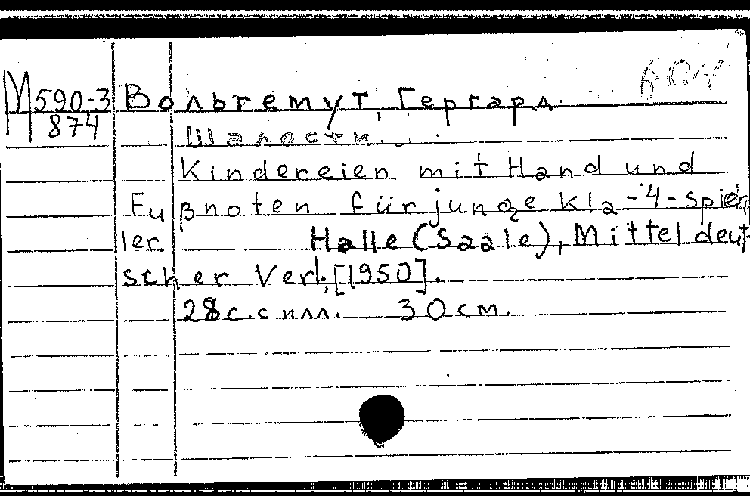 М590-3 Вольгемут, Гергард.
874
Шалости...
Kindereien mit Hand und
Fußnoten für junge Kla-4-spie
ler. Halle (Saale), Mitteldeut
scher Verl., [1950].
28 с. с илл. 30 см.